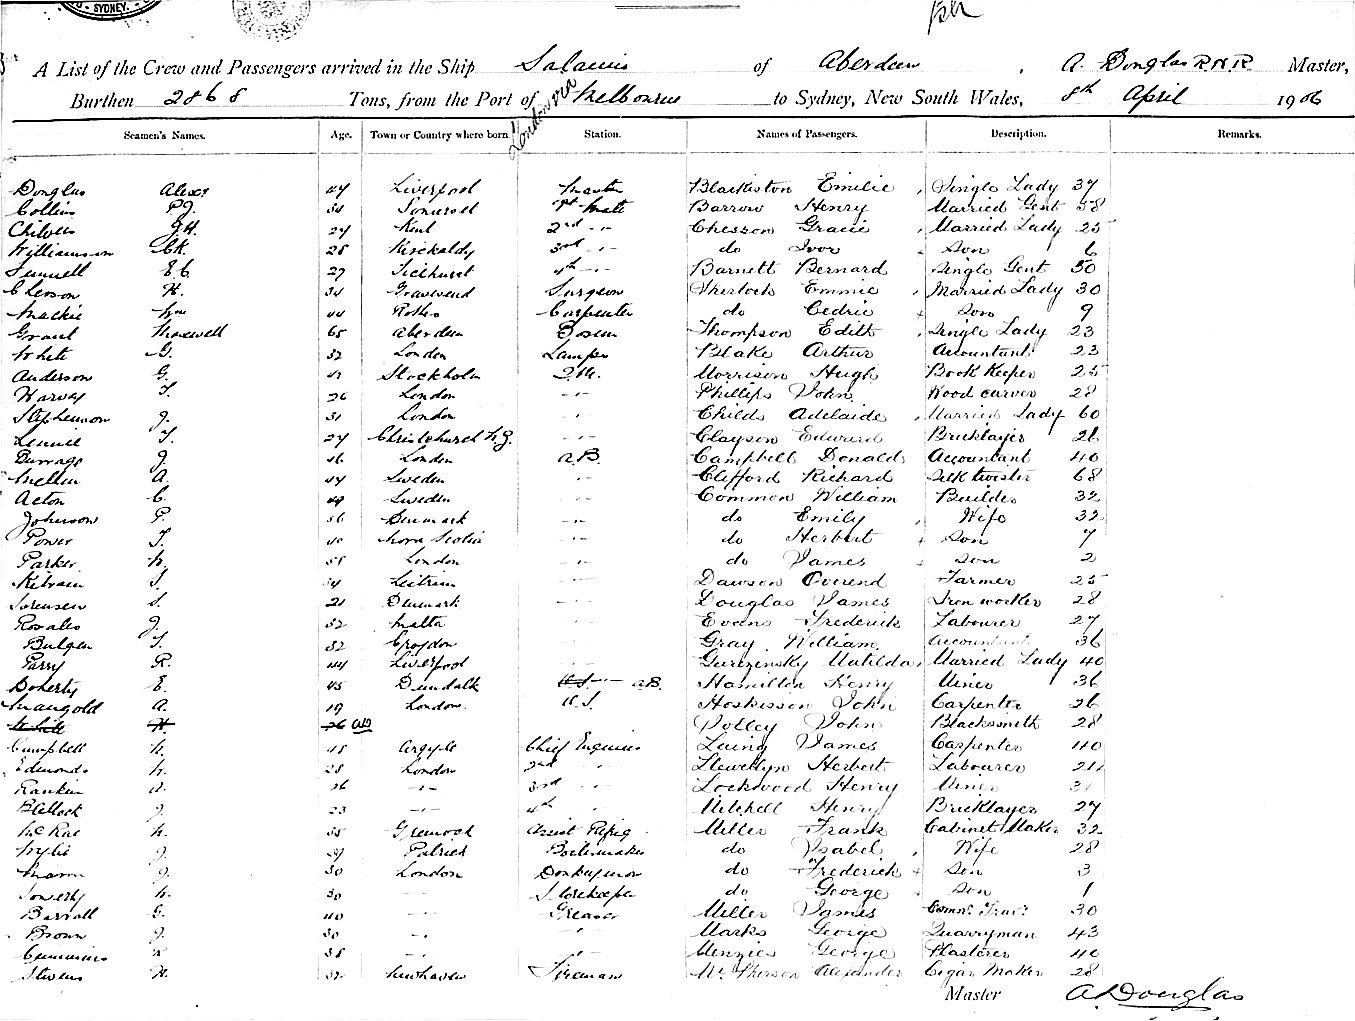 SYDNEY.
A List of the Crew and Passengers arrived in the Ship Salamis of Aberdeen, A. Douglas R.N.R. Master,
Burthen 2868 Tons, from the Port of London via Melbourne to Sydney, New South Wales, 8th April 1906
Seamen's Names. Age. Town or Country where born. Station. Names of Passengers. Description. Remarks.
Douglas Alexr 47 Liverpool Master Blackiston Emilie Single Lady 37
Collins P.J. 34 Somerset 1st Mate Barrow Henry Married Gent 58
Chilvers G.H. 24 Kent 2nd -"- Chesson Gracie Married Lady 25
Williamson C.K. 28 Kirkcaldy 3rd -"- do Ivor son 6
E.C. 27 Ticehurst 4th -"- Barnett Bernard Single Gent 50
Chesson H. 34 Gravesend Surgeon Sherlock Emmie Married Lady 30
Mackie Wm 44 Rothes Carpenter do Cedric son 9
Grant Maxwell 65 Aberdeen Bosun Thompson Edith Single Lady 23
White G. 32 London Lamps Blake Arthur Accountant 23
Anderson G. Stockholm Q.M. Morrison Hugh Book Keeper 25
Harvey T. 26 London -"- Phillips John Wood carver 28
Stephenson J. 31 London -"- Childs Adelaide Married Lady 60
T. 24 Christchurch N.Z. -"- Clayson Edward Bricklayer 26
Burrage J. 46 London A.B. Campbell Donald Accountant 40
Mellin A. 44 Sweden -"- Clifford Richard Silk twister 68
Acton C. 49 Sweden -"- Common William Builder 32
Johnson P. 56 Denmark -"- do Emily Wife 32
Power T. 40 Nova Scotia -"- do Herbert son 7
Parker H. 55 London -"- do James son 2
Kilrain J. 54 Leitrim -"- Dawson Overend Farmer 25
Sorensen S. 21 Denmark -"- Douglas James Iron worker 28
Rosales J. 52 Malta -"- Evans Frederick Labourer 27
Bulgen T. 32 Croydon -"- Gray William Accountant 36
Parry R. 44 Liverpool -"- Gurezensky Matilda Married Lady 40
Doherty E. 45 Dundalk O.S. -"- A.B. Hamilton Henry Miner 36
Mangold A. 19 London O.S. Hoskisson John Carpenter 26
White H. 26 Jolley John Blacksmith 28
Campbell N. 48 Argyle Chief Engineer Laing James Carpenter 40
Edmonds H. 28 London 2nd -"- Llewellyn Herbert Labourer 21
Rankin A. 26 -"- 3rd -"- Lockwood Henry Miner 31
Blellock J. 23 -"- 4th -"- Mitchell Henry Bricklayer 27
McRae N. 35 Greenock Assist Refrig Miller Frank Cabinet Maker 32
Wylie J. 39 Patrick Boilermaker do Isabel Wife 28
Mason J. 30 London Donkeyman do Frederick son 3
Sowerby H. 30 -"- Storekeeper do George son 1
Barrall G. 40 -"- Greaser Miller James Comml Travr 30
Brown J. 30 -"- -"- Marks George Quarryman 43
Cummins 38 -"- -"- Menzies George Plasterer 40
Stevens H. 32 Newhaven Fireman McPherson Alexander Cigar Maker 28
Master A. Douglas